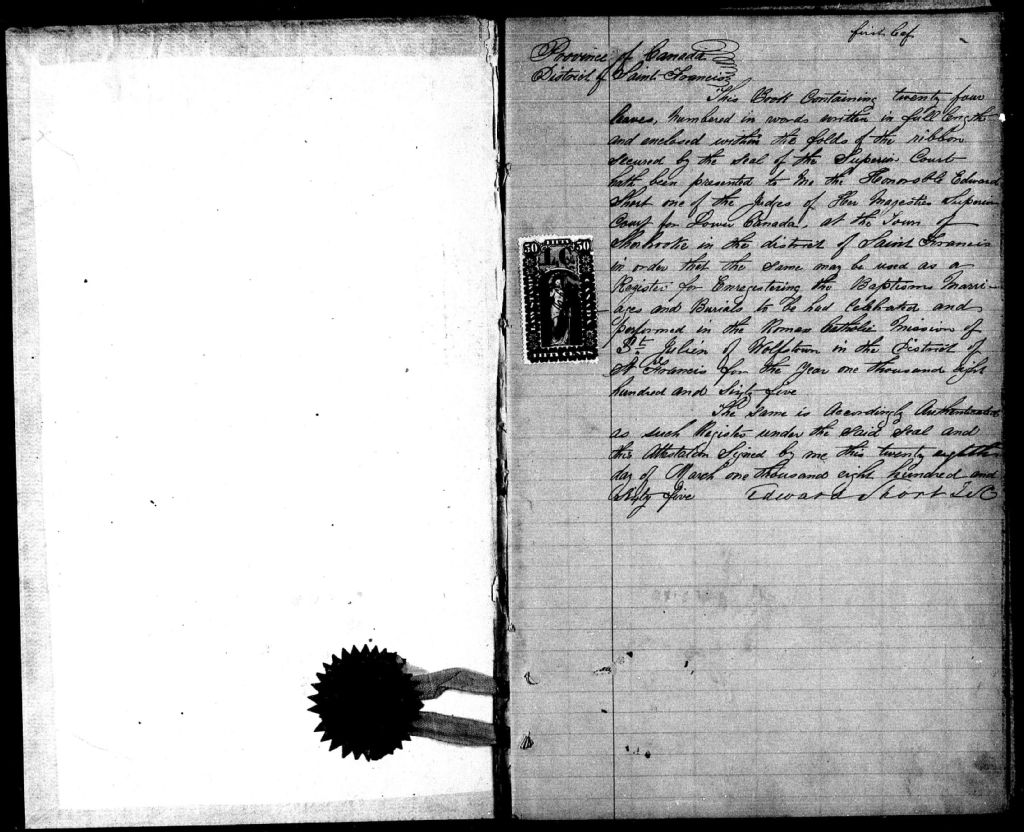 first leaf
Province of Canada
District of Saint Francis
This Book Containing twenty four
leaves, numbered in words written in full length
and enclosed within the folds of the ribbon
secured by the seal of the Superior Court
hath been presented to me the Honorable Edward
Short one of the Judges of Her Majesties Superior
Court for Lower Canada, at the Town of
Sherbrooke in the district of Saint Francis
in order that the same may be used as a
Register for Enregistering the Baptisms Marri-
ages and Burials to be had Celebrated and
performed in the Roman Catholic Mission of
St. Julien of Wolfstown in the District of
St Francis for the Year one thousand eight
hundred and Sixty five
The Same is Accordingly Authenticated
as such Register under the said Seal and
this Attestation Signed by me this twenty eighth
day of March one thousand eight hundred and
Sixty five Edward Short
50 50
L C